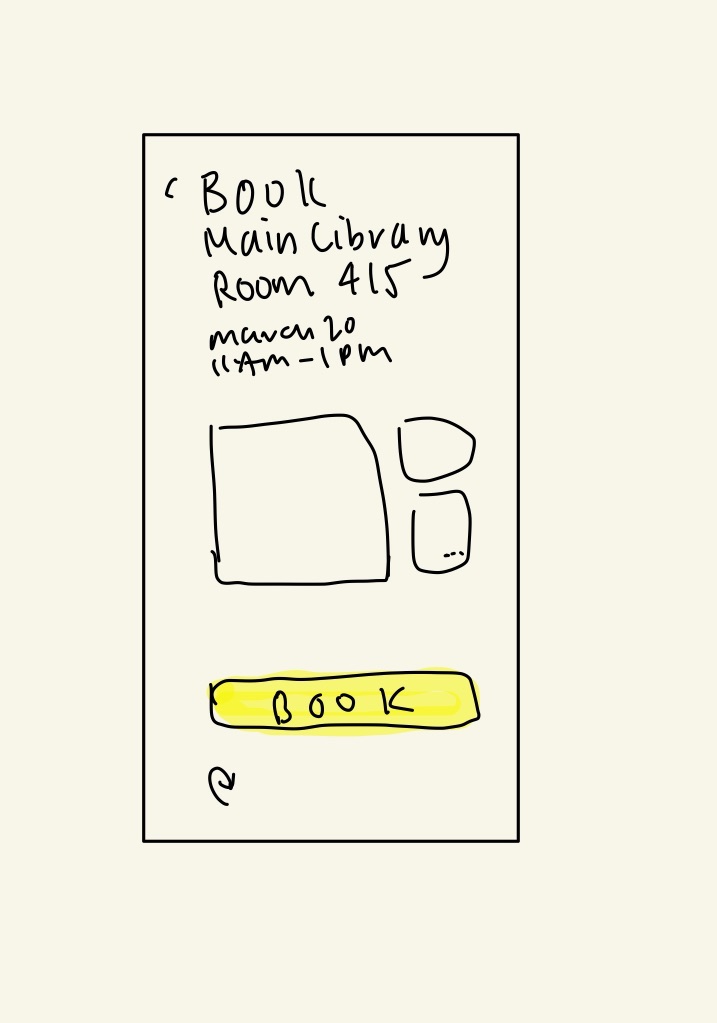 < Book
Main Library
Room 415
march 20
11AM - 1 PM
...
BOOK